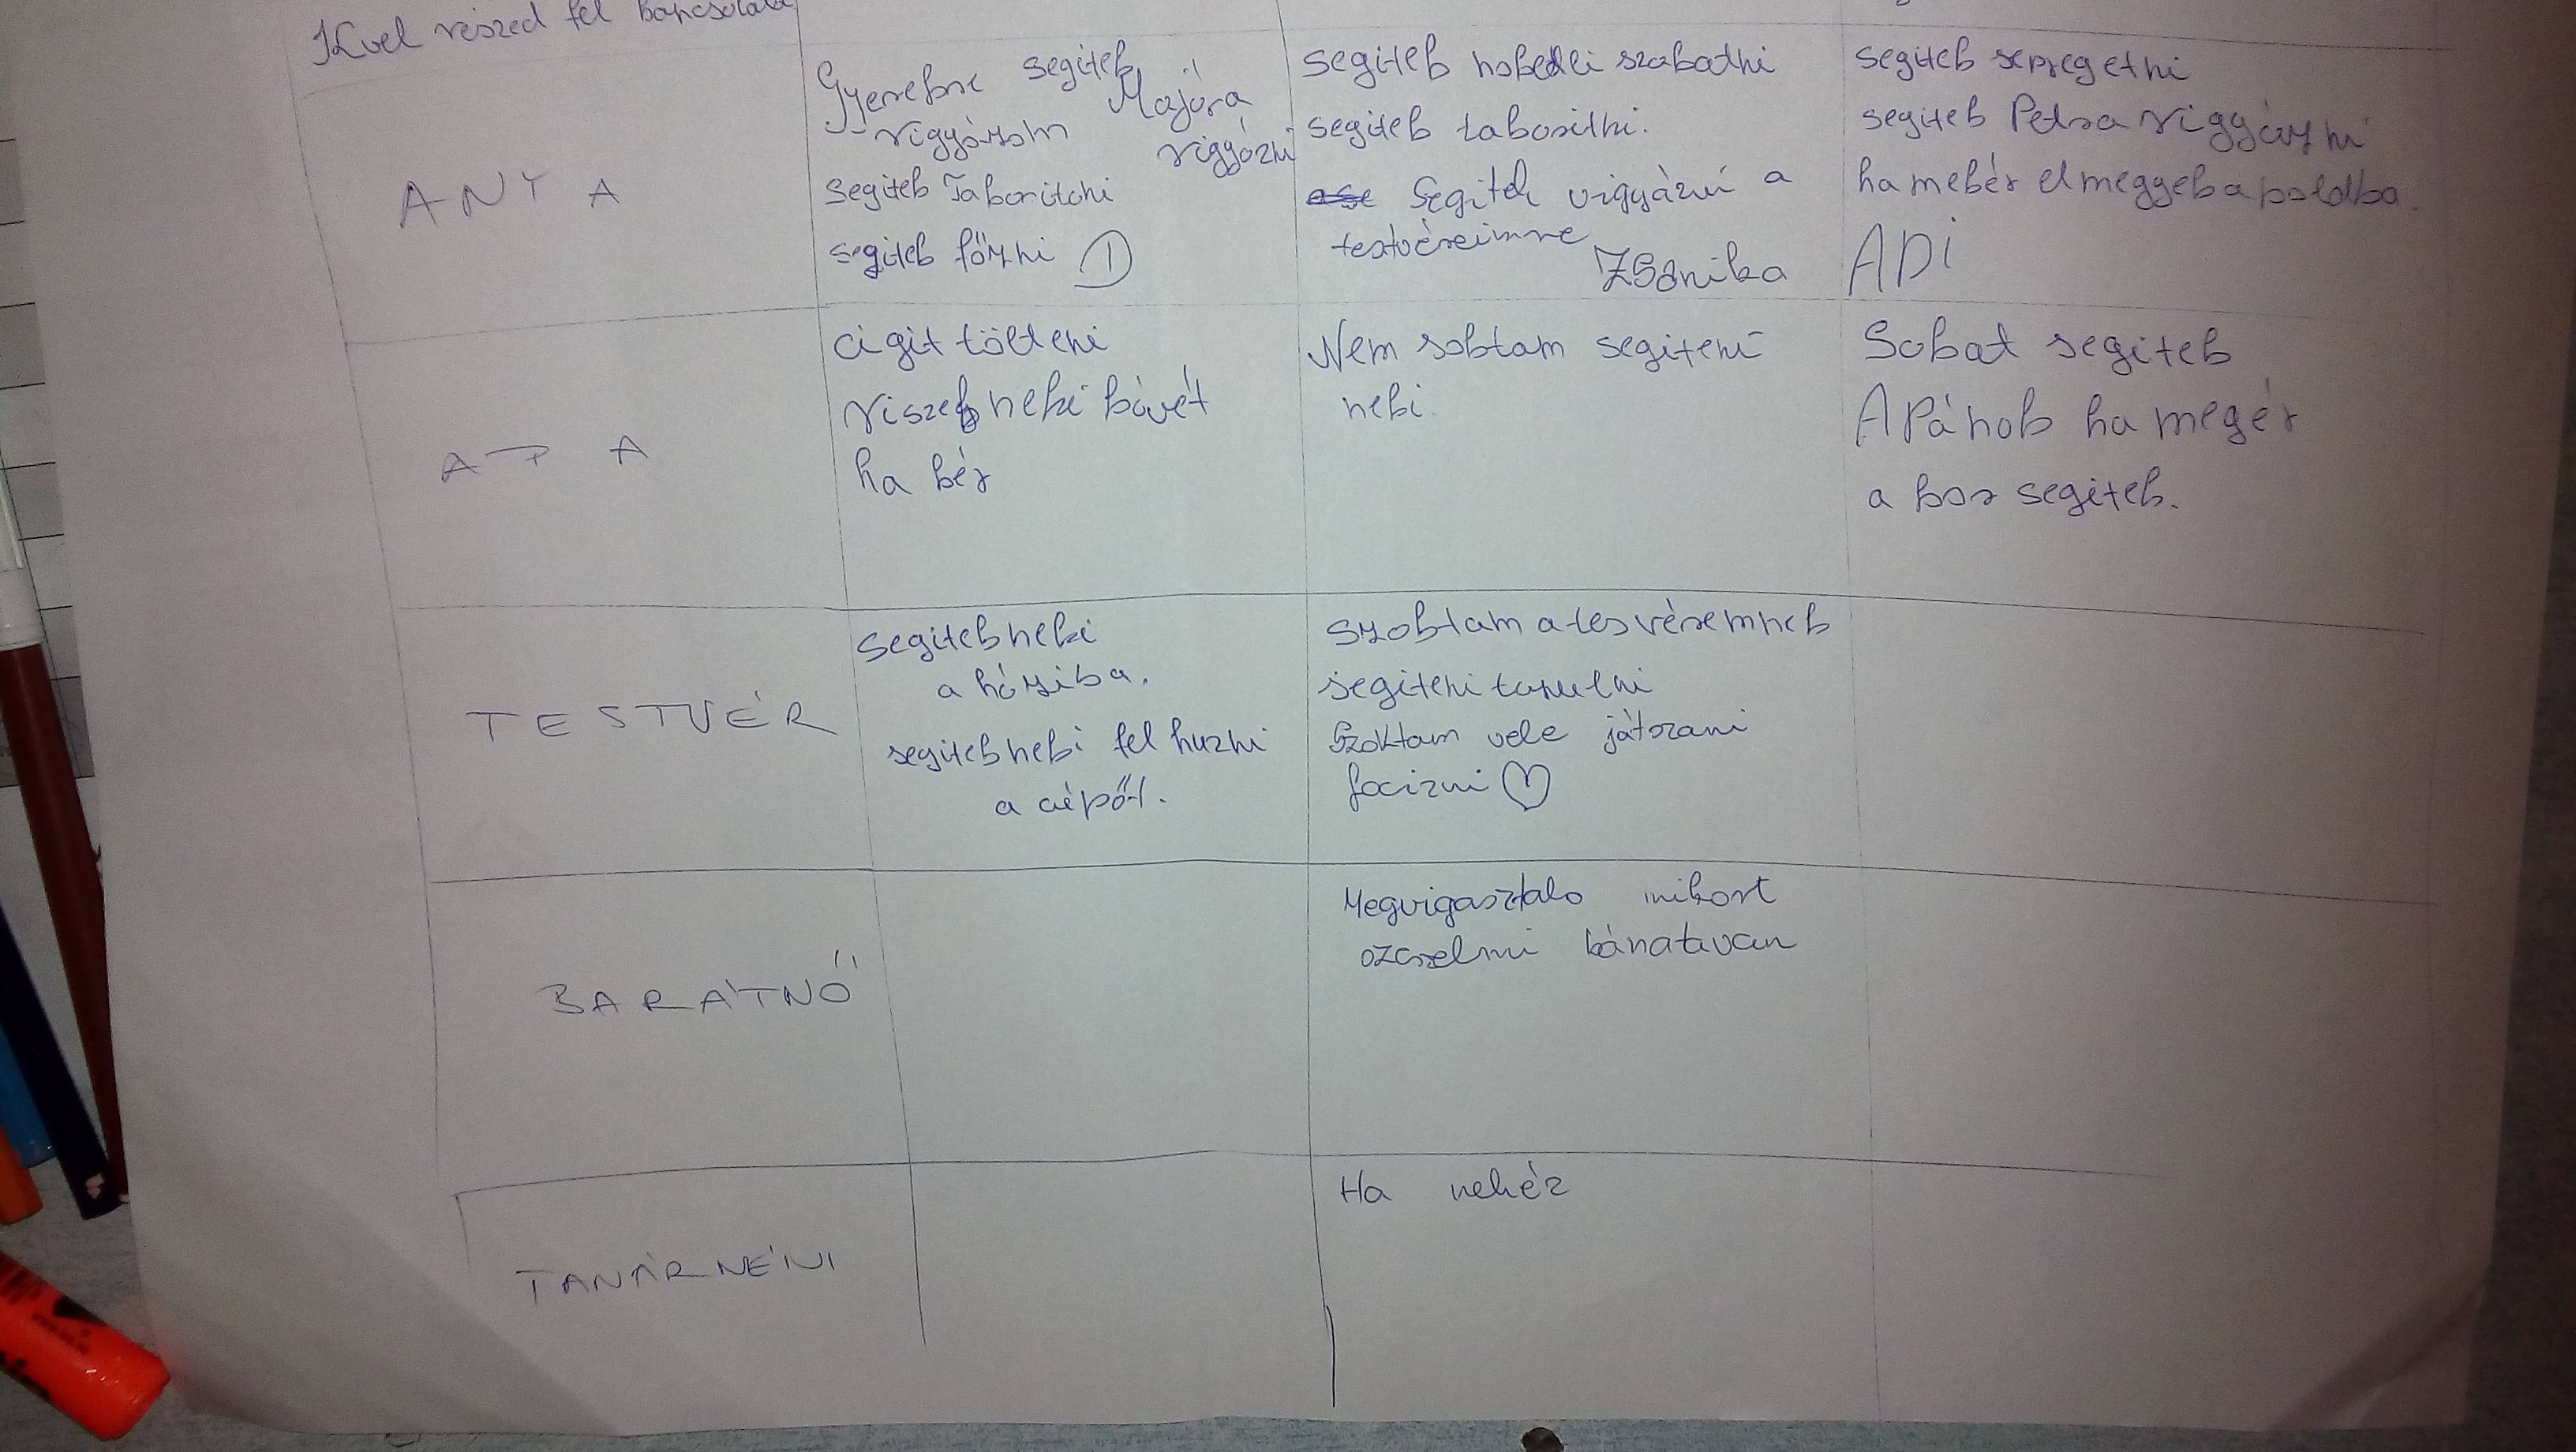 Kivel veszed fel
ANYA
Gyerekre segitek Majora
vigyázom vigyázni
segitek Taboritchi
segitek főzni 1
segitek nokedli szakatni
segitek takositni.
Segitek vigyázni a
testvéreimre
ZSanika
segitek sepregetni
segitek Petra vigyázni
ha mekér elmegyek a boldba.
ADI
APA
cigit tölteni
viszek neki kávét
ha kér
Nem soktam segiteni
neki
Sokat segitek
APának ha megér
a kor segitek.
TESTVÉR
segitek neki
a háziba.
segitek neki fel huzni
a cépőt.
szoktam a tesvéremnek
segiteni tanulni
Szoktam vele játszani
focizni ♡
BARÁTNŐ
Megvigasztalo mikort
szerelmi bánatavan
TANÁRNÉNI
Ha nehéz